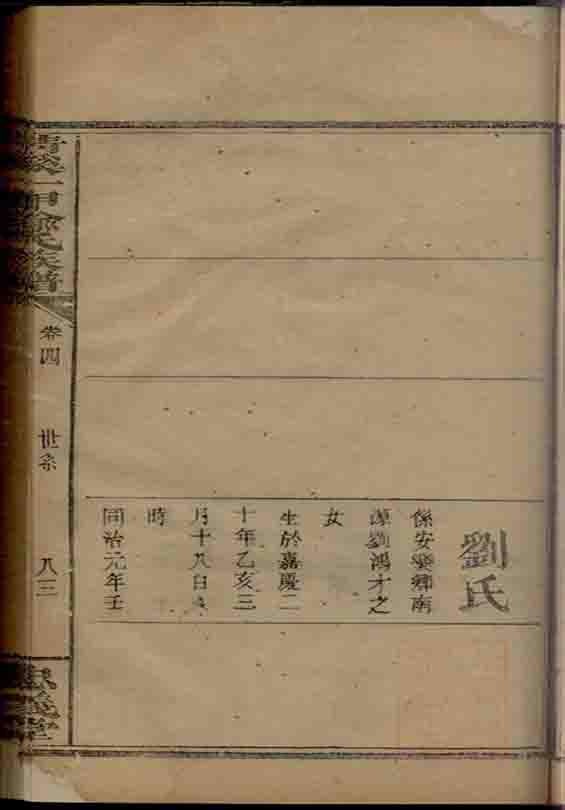 劉氏
係安樂鄉南
源劉鴻才之
女
生於嘉慶二
十年乙亥三
月十八日
時
同治元年壬
卷四
世系
八三